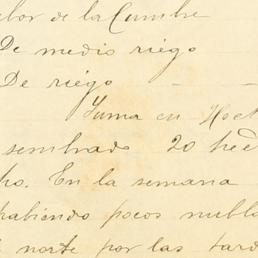 bor de la Cumbre
De medio riego
De riego - -
Suma en Hect
sembrado 20 hec
ho. En la semana
habiendo pocos nubla
norte por las tard